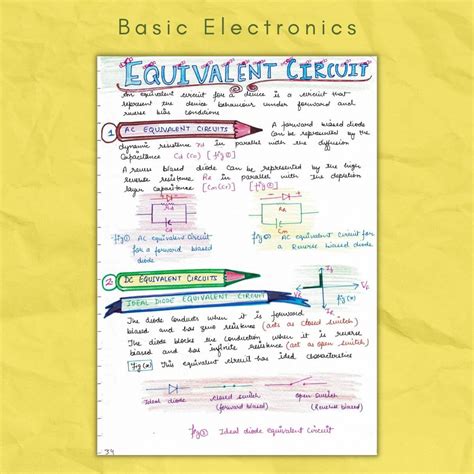 Basic Electronics
EQUIVALENT CIRCUIT
An equivalent circuit for a device is a circuit that
represent the device behaviour under forward and
reverse bias conditions
1 AC EQUIVALENT CIRCUITS A forward biased diode
can be represented by the
dynamic resistance rd in parallel with the diffusion
Capacitance Cd (CD) [fig
A reverse biased diode can be represented by the high
reverse resistance in parallel with the depletion
layer capacitance
AC equivalent Circuit
for a forward biased
diode
AC equivalent Circuit for
a Reverse biased diode
2 DC EQUIVALENT CIRCUITS
IDEAL DIODE EQUIVALENT CIRCUIT
The diode conducts when it is forward
biased and has zero resistance (acts as closed switch)
The diode blocks the conduction when it is reverse
biased and has infinite resistance (acts as open switch)
This equivalent circuit has ideal characteristics
Ideal diode
closed switch
(forward biased)
open switch
(Reverse biased)
Ideal diode equivalent Circuit
34